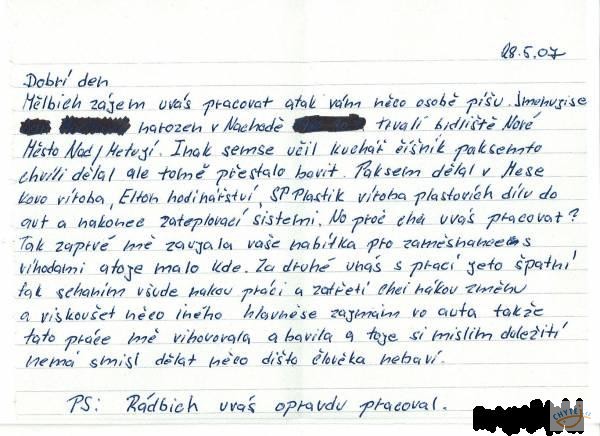 28.5.07
Dobrí den
Mělbich zájem uvás pracovat atak vám něco osobě píšu. Jmenujise
narozen v Nachodě trvalí bidliště Nové
Město Nad/Metují. Inak semse učil kuchář číšnik paksemto
chvíli dělal ale tomě přestalo bavit. Paksem dělal v Mese
kovo víroba, Elton hodinářství, SP Plastik víroba plastovích dílu do
aut a nakonec zateplovací sistemi. No proč chci uvás pracovat?
Tak zaprvé mě zaujala vaše nabítka pro zaměsnance s
víhodami atoje malo kde. Za druhé unás s prací jeto špatní
tak scháním všude nakou práci a zatřetí chci nákou změnu
a viskoušet něco iného hlavněse zajmám vo auta takže
tato práce mě vihovovala a bavila a toje si mislim duležití
nemá smisl dělat něco dišto člověka nebaví.
PS: Rádbich uvás opravdu pracoval.